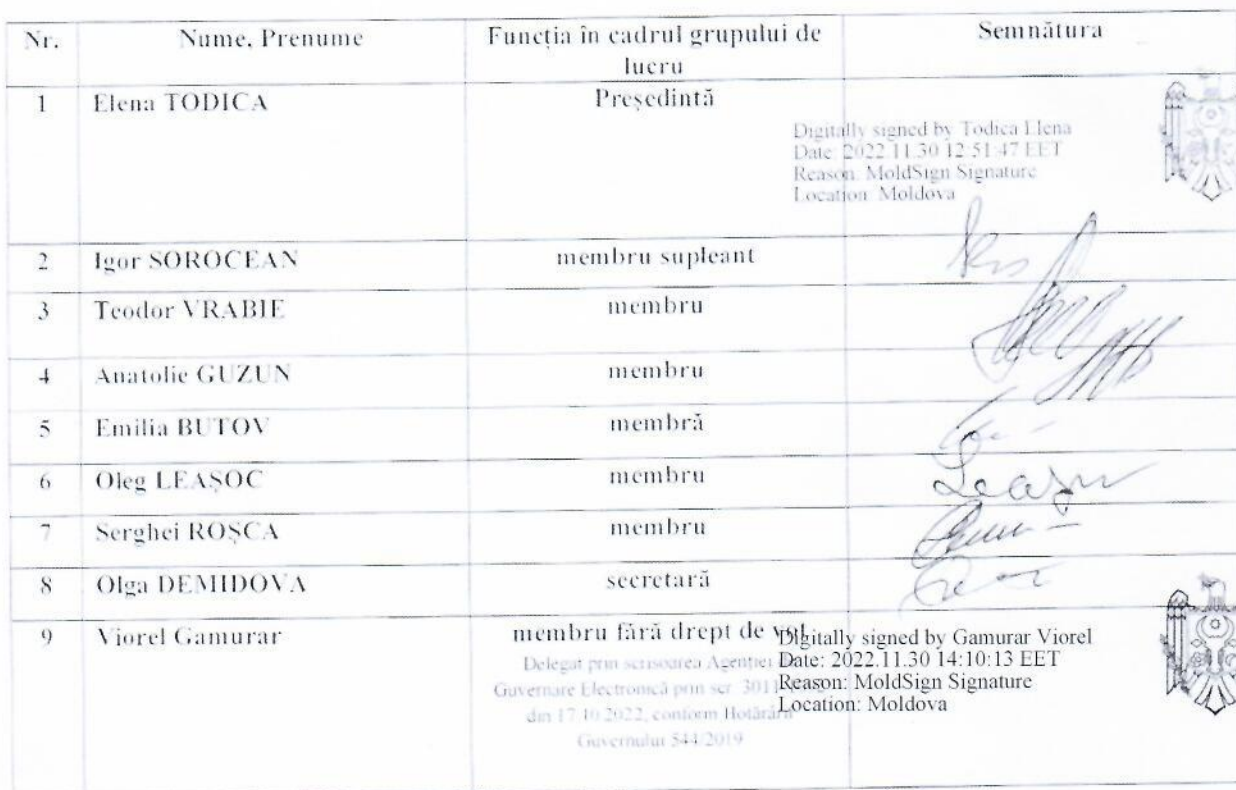 Nr. Nume, Prenume Funcția în cadrul grupului de lucru Semnătura
1 Elena TODICA Președintă
Digitally signed by Todica Elena
Date: 2022.11.30 12:51:47 EET
Reason: MoldSign Signature
Location: Moldova
2 Igor SOROCEAN membru supleant
3 Teodor VRABIE membru
4 Anatolie GUZUN membru
5 Emilia BUTOV membră
6 Oleg LEAȘOC membru
7 Serghei ROȘCA membru
8 Olga DEMIDOVA secretară
9 Viorel Gamurar membru fără drept de vot
Delegat prin scrisoarea Agenției
Guvernare Electronică prin scr. 3011
din 17.10.2022, conform Hotărârii
Guvernului 544/2019
Digitally signed by Gamurar Viorel
Date: 2022.11.30 14:10:13 EET
Reason: MoldSign Signature
Location: Moldova